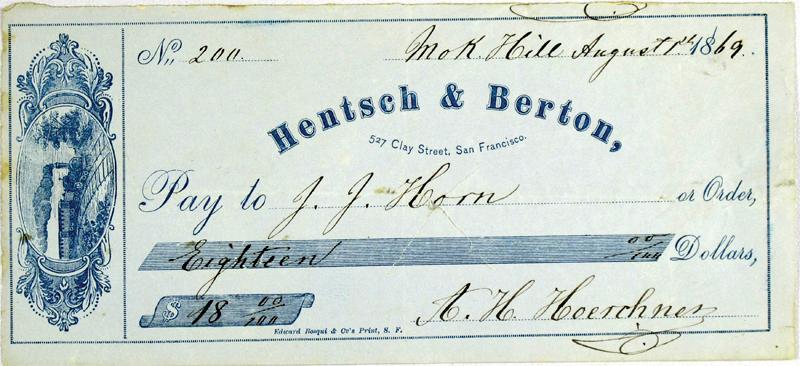 No. 200. Mok. Hill August 1st 1869.
Hentsch & Berton,
527 Clay Street, San Francisco.
Pay to J. J. Horn or Order,
Eighteen 00/100 Dollars,
$ 18 00/100 A. H. Hoerchner
Edward Bosqui & Co's Print, S. F.